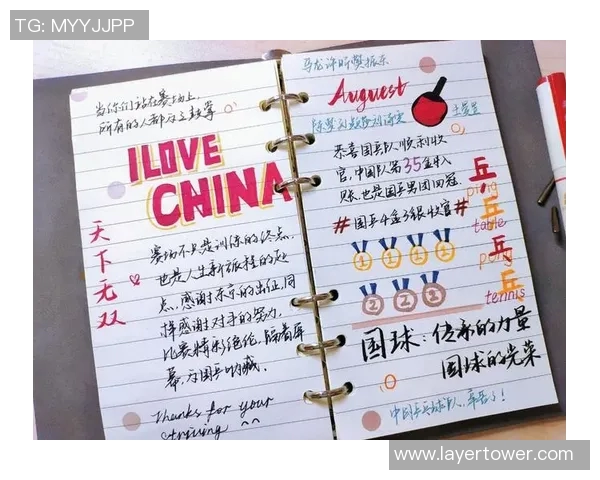 TG: MYYJJPP
当你们站在赛场上,
所有的人都为之鼓掌
I LOVE
CHINA
天下无双
赛场不只是训练的终点,
也是人生新旅程的起
点,感谢东京的出征,同
样感谢对手的努力,
比赛精彩绝伦,隔着屏
幕,为国乒呐喊。
Thanks for your
striving ^^
马龙许昕樊振东
Auguest
陈梦刘诗雯孙颖莎
王曼昱
恭喜国乒队顺利收
官,中国队第35金收
账,也是国乒男团四冠
#国乒4金3银收官#
1 1 1 1
2 2 2
乒乓乒乓
ping
table
pong
tennis
国球:传承的力量
国球的光荣
中国乒乓球队,辛苦了!
www.layertower.com